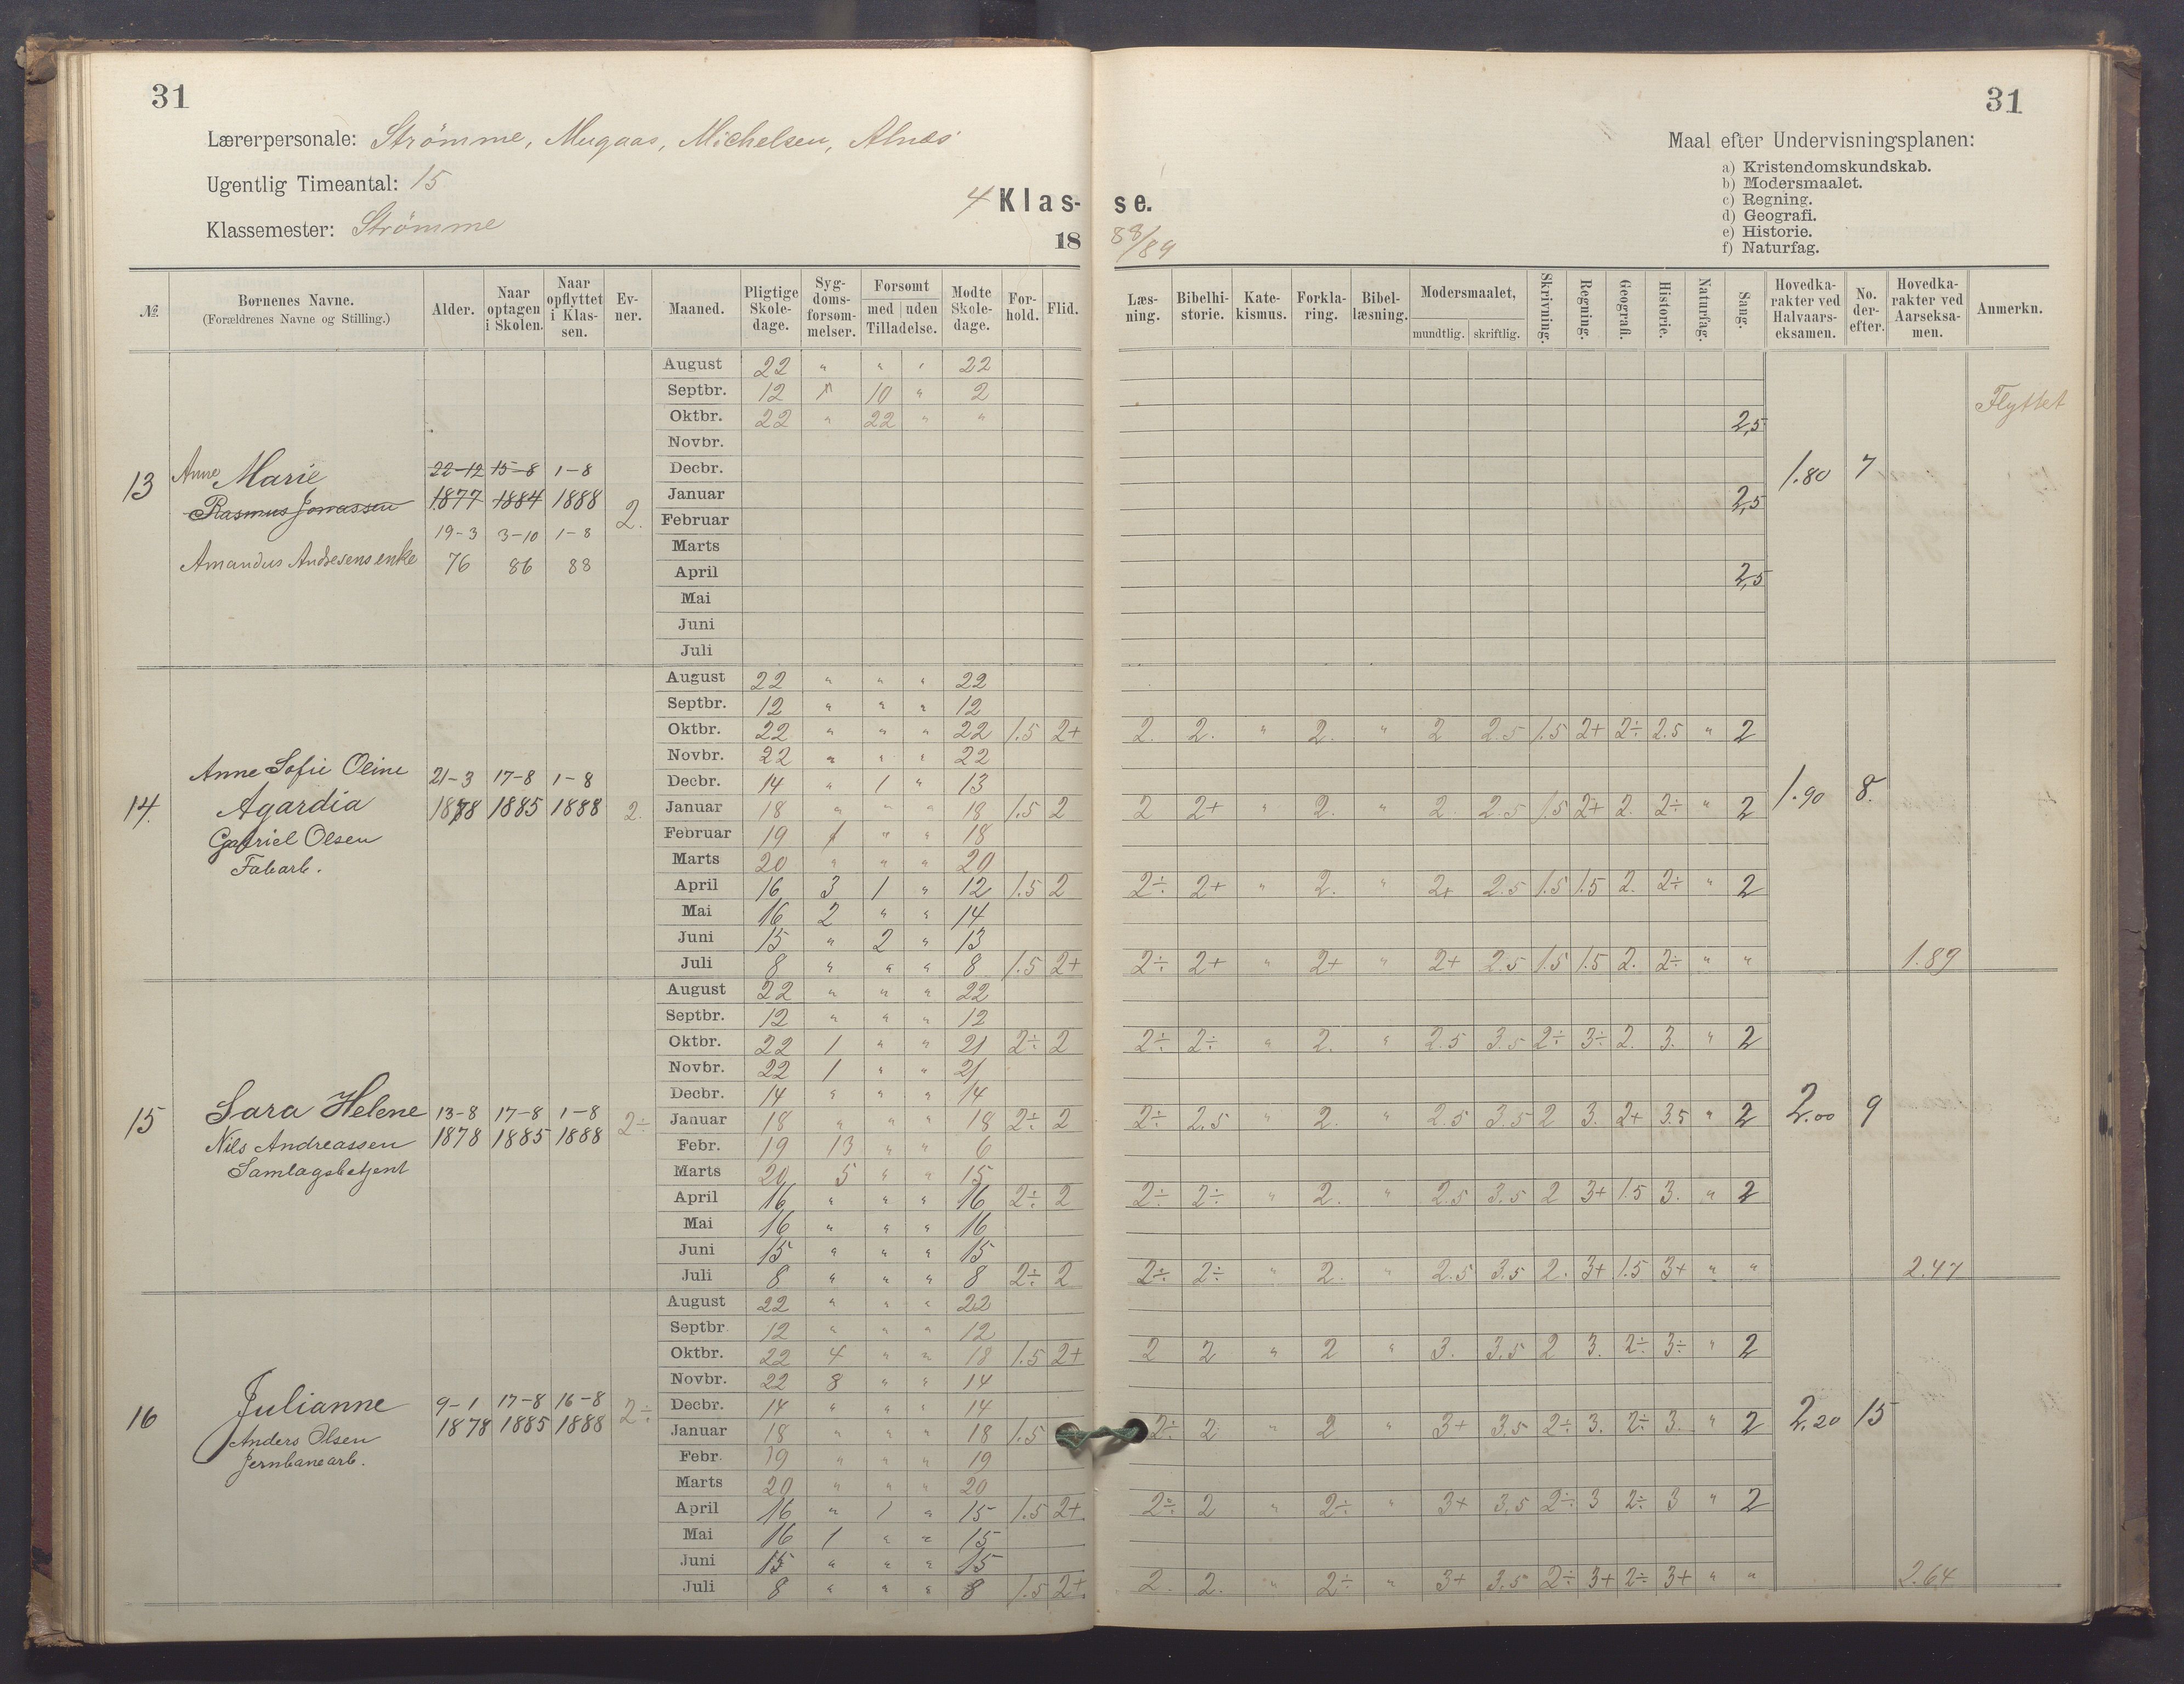 31
Lærerpersonale: Strömme, Mugaas, Michelsen, Alnæs
Ugentlig Timeantal: 15
Klassemester: Strömme
4 Klas-
18
№ Børnenes Navne. (Forældrenes Navne og Stilling.) Alder. Naar optagen i Skolen. Naar opflyttet i Klas-sen. Ev-ner. Maaned. Pligtige Skole-dage. Syg-doms-forsøm-melser. Forsømt med uden Tilladelse. Mødte Skole-dage. For-hold. Flid.
August 22 " " " 22
Septbr. 12 " 10 " 2
Oktbr. 22 " 22 " "
Novbr.
13 Anne Marie 22-12 15-8 1-8 Decbr.
Rasmus Jonassen 1877 1884 1888 2. Januar
19-3 3-10 1-8 Februar
Marts
Amandus Andresens enke 76 86 88 April
Mai
Juni
Juli
August 22 " " " 22
Septbr. 12 " " " 12
Oktbr. 22 " " " 22 1.5 2+
Novbr. 22 " " " 22
Anne Sofie Oline 21-3 17-8 1-8 Decbr. 14 " 1 " 13
14. Agardia 1878 1885 1888 2. Januar 18 " " " 18 1.5 2
Gabriel Olsen Februar 19 1 " " 18
Fabarb. Marts 20 " " " 20
April 16 3 1 " 12 1.5 2
Mai 16 2 " " 14
Juni 15 " 2 " 13
Juli 8 " " " 8 1.5 2+
August 22 " " " 22
Septbr. 12 " " " 12
Oktbr. 22 1 " " 21 2÷ 2
Novbr. 22 1 " " 21
Decbr. 14 " " " 14
15 Sara Helene 13-8 17-8 1-8 2÷ Januar 18 " " " 18 2÷ 2
Nils Andreassen 1878 1885 1888 Febr. 19 13 " " 6
Samlagsbetjent Marts 20 5 " " 15
April 16 " " " 16 2÷ 2
Mai 16 " " " 16
Juni 15 " " " 15
Juli 8 " " " 8 2÷ 2
August 22 " " " 22
Septbr 12 " " " 12
Oktbr. 22 4 " " 18 1.5 2+
Novbr. 22 8 " " 14
16 Julianne 9-1 17-8 16-8 2÷ Decbr. 14 " " " 14
1878 1885 1888 Januar 18 " " " 18 1.5
Anders Olsen Febr. 19 " " " 19
Jernbanearb. Marts 20 " " " 20
April 16 " 1 " 15 1.5 2+
Mai 16 1 " " 15
Juni 15 " " " 15
Juli 8 " " " 8 1.5 2+
31
Maal efter Undervisningsplanen:
a) Kristendomskundskab.
b) Modersmaalet.
c) Regning.
d) Geografi.
e) Historie.
f) Naturfag.
se.
88/89
Læs-ning. Bibelhi-storie. Kate-kismus. Forkla-ring. Bibel-læsning. Modersmaalet, mundtlig. skriftlig. Skrivning. Regning. Geografi. Historie. Naturfag. Sang. Hovedka-rakter ved Halvaars-eksamen. No. der-efter. Hovedka-rakter ved Aarseksa-men. Anmerkn.
Flyttet
2,5
1.80 7
2,5
2,5
2. 2. " 2. " 2 2.5 1.5 2+ 2÷ 2.5 " 2
1.90 8.
2 2+ " 2. " 2. 2.5 1.5 2+ 2. 2÷ " 2
2÷ 2+ " 2. " 2+ 2.5 1.5 1.5 2. 2÷ " 2
2÷ 2+ " 2+ " 2+ 2.5 1.5 1.5 2. 2÷ " " 1.89
2÷ 2÷ " 2. " 2.5 3.5 2÷ 3÷ 2. 3. " 2
2÷ 2.5 " 2. " 2.5 3.5 2 3. 2+ 3.5 " 2 2.00 9
2÷ 2÷ " 2. " 2.5 3.5 2 3+ 1.5 3. " 2
2÷ 2÷ " 2. " 2.5 3.5 2. 3+ 1.5 3+ " " 2.47
2 2 " 2 " 3. 3.5 2 3. 2÷ 3÷ " 2
2÷ 2 " 2 " 3+ 3.5 2÷ 3. 2÷ 3. " 2 2.20 15
2÷ 2 " 2÷ " 3+ 3.5 2÷ 3 2÷ 3 " 2
2. 2. " 2÷ " 3+ 3.5 2÷ 3+ 2÷ 3+ " " 2.64